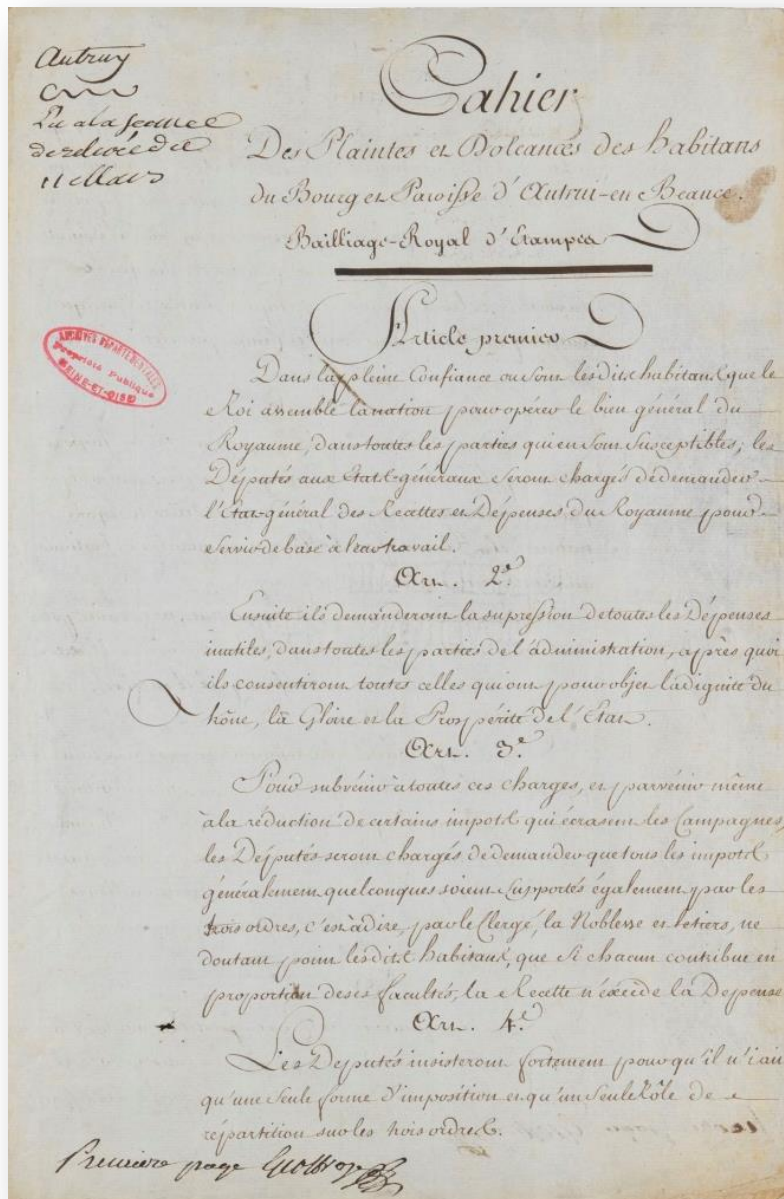 Autruy
Lu a la seance
de relevée du
11 Mars
Cahier
Des Plaintes et Doleances des habitans
du Bourg et Paroisse d'Autrui-en Beauce.
Bailliage-Royal d'Etampes
ARCHIVES DEPARTEMENTALES
Propriété Publique
SEINE-ET-OISE
Article premier
Dans la pleine Confiance ou sont lesdits habitans que le
Roi assemble la nation pour opérer le bien général du
Royaume, dans toutes les parties qui en sont susceptibles; les
Députés aux Etats-généraux seront chargés de demander
l'Etat-général des Recettes et Dépenses du Royaume pour
servir de base à leur travail.
Art. 2e.
Ensuite ils demanderont la supression de toutes les Dépenses
inutiles, dans toutes les parties de l'administration, après quoi
ils consentiront toutes celles qui ont pour objet la dignité du
Thône, la Gloire et la Prospérité de l'Etat.
Art. 3e.
Pour subvenir à toutes ces charges, et parvenir même
à la réduction de certains impots qui écrasent les Campagnes,
les Députés seront chargés de demander que tous les impots
généralement quelconques soient supportés également par les
trois ordres, c'est à dire, par le Clergé, la Noblesse et le tiers, ne
doutant point lesdits habitans, que si chacun contribue en
proportion de ses facultés, la Recette n'éxcède la Depense
Art. 4e.
Les Députés insisteront fortement pour qu'il n'i ait
qu'une seule forme d'imposition et qu'un seul Rôle de
répartition sur les trois ordres.
Premiere page